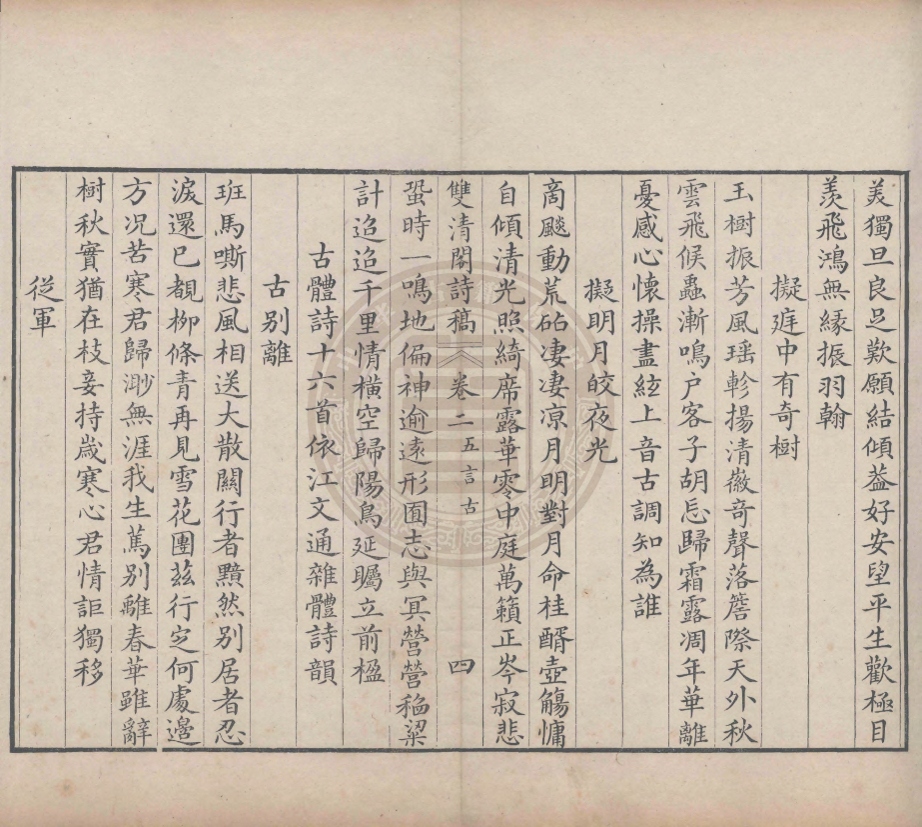 美獨旦良足歎願結傾蓋好安望平生歡極目
羨飛鴻無緣振羽翰
擬庭中有奇樹
玉樹振芳風瑶軫揚清徽竒聲落簷際天外秋
雲飛候蟲漸鳴户客子胡忘歸霜露凋年華離
憂感心懷操盡絃上音古調知為誰
擬明月皎夜光
商飈動荒砧凄凄凉月明對月命桂醑壺觴慵
自傾清光照綺席露華零中庭萬籟正岑寂悲
雙清閣詩稿 卷二 五言古 四
蛩時一鳴地偏神逾遠形囿志與冥營營稻粱
計迢迢千里情横空歸陽鳥延矚立前楹
古體詩十六首依江文通雜體詩韻
古别離
班馬嘶悲風相送大散關行者黯然别居者忍
淚還已覩柳條青再見雪花團兹行定何處邊
方况苦寒君歸渺無涯我生蔫别離春華雖辭
樹秋實猶在枝妾持歲寒心君情詎獨移
從軍